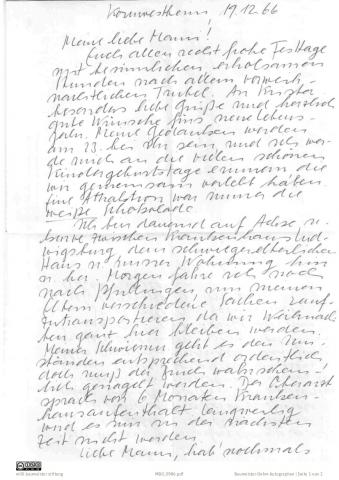 Kornwestheim, 19.12.66
Meine liebe Mami!
Euch allen recht frohe Festtage
mit besinnlichen, erholsamen
Stunden nach allem vorweih-
nachtlichen Trubel. An
besonders liebe Grüße und herzlich
gute Wünsche fürs neue Lebens-
jahr. Meine Gedanken werden
am 23. bei ihr sein und ich wer-
de mich an die vielen schönen
Kindergeburtstage erinnern, die
wir gemeinsam verlebt haben.
Eine Attraktion war immer die
weiße Schokolade.
Ich bin dauernd auf Achse u.
zwischen Krankenhaus Lud-
wigsburg, dem schwiegerelterlichen
Haus u. Wohnung hin
u. her. Morgen fahre ich noch
nach Pfullingen, um meinen
Eltern verschiedene Sachen zurück-
zutransportieren, da wir Weihnach-
ten ganz hier bleiben werden.
Meiner geht es den Um-
ständen entsprechend ordentlich,
doch muß der Bruch wahrschein-
lich genagelt werden. Der Chefarzt
sprach von 6 Monaten Kranken-
hausaufenthalt. Langweilig
wird es mir in der nächsten
Zeit nicht werden.
Liebe Mami, hab' nochmals
mit baumeister stiftung
Baumeister Online Autographen | Seite 1 von 2